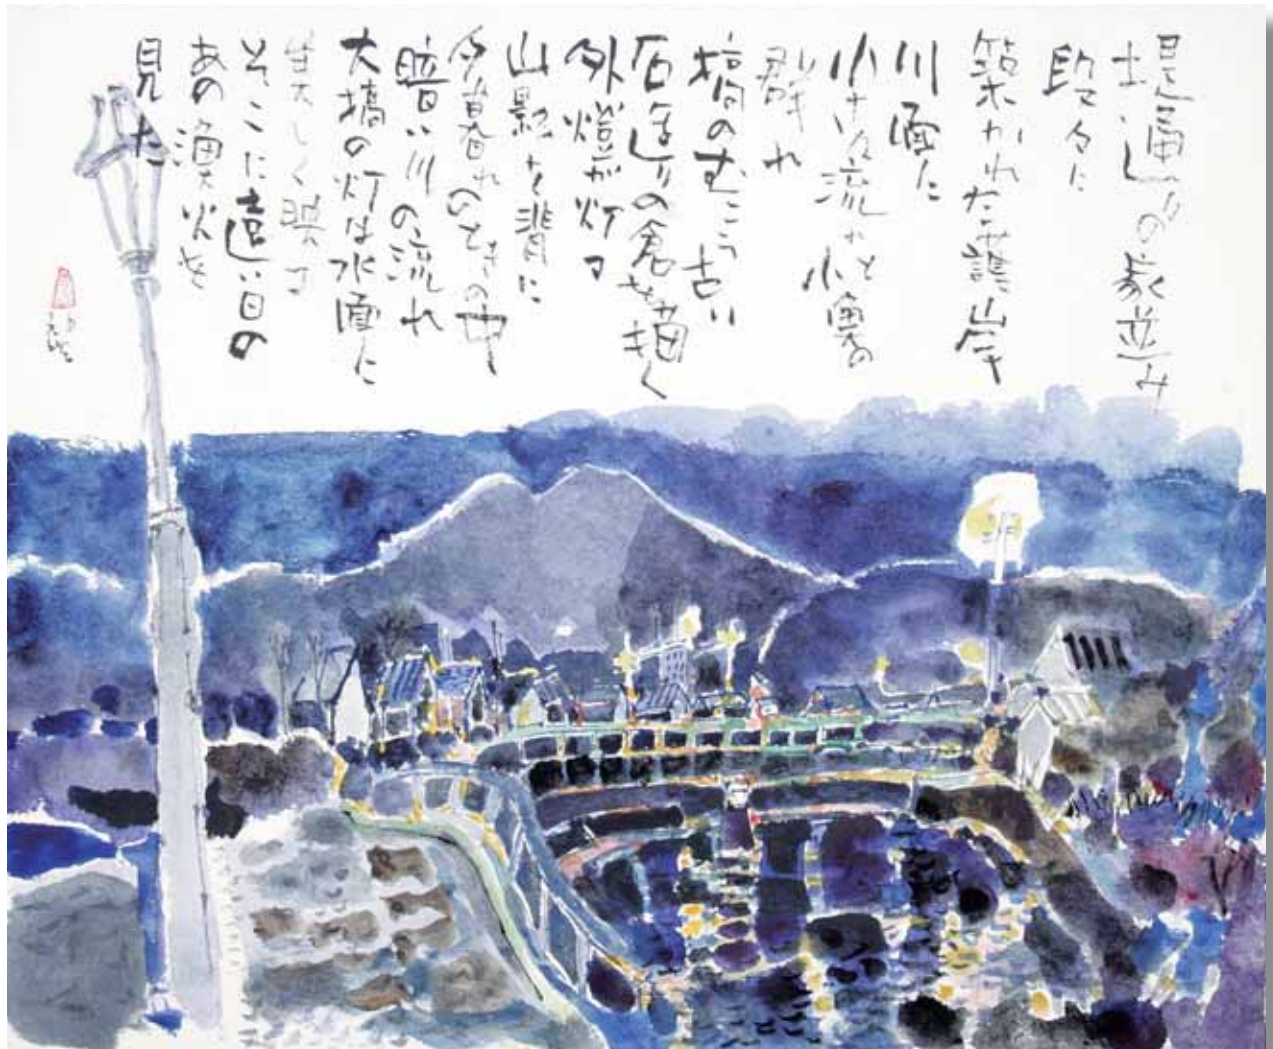 堤通りの家並み
段々に
築かれた護岸
川面に
小さな流れと小魚の
群れ
橋のむこう古い
石造りの倉を描く
外燈が灯る
山影を背に
夕暮れのときの中
暗い川の流れ
大橋の灯は水面に
美しく映る
そこに遠い日の
あの漁火を
見た